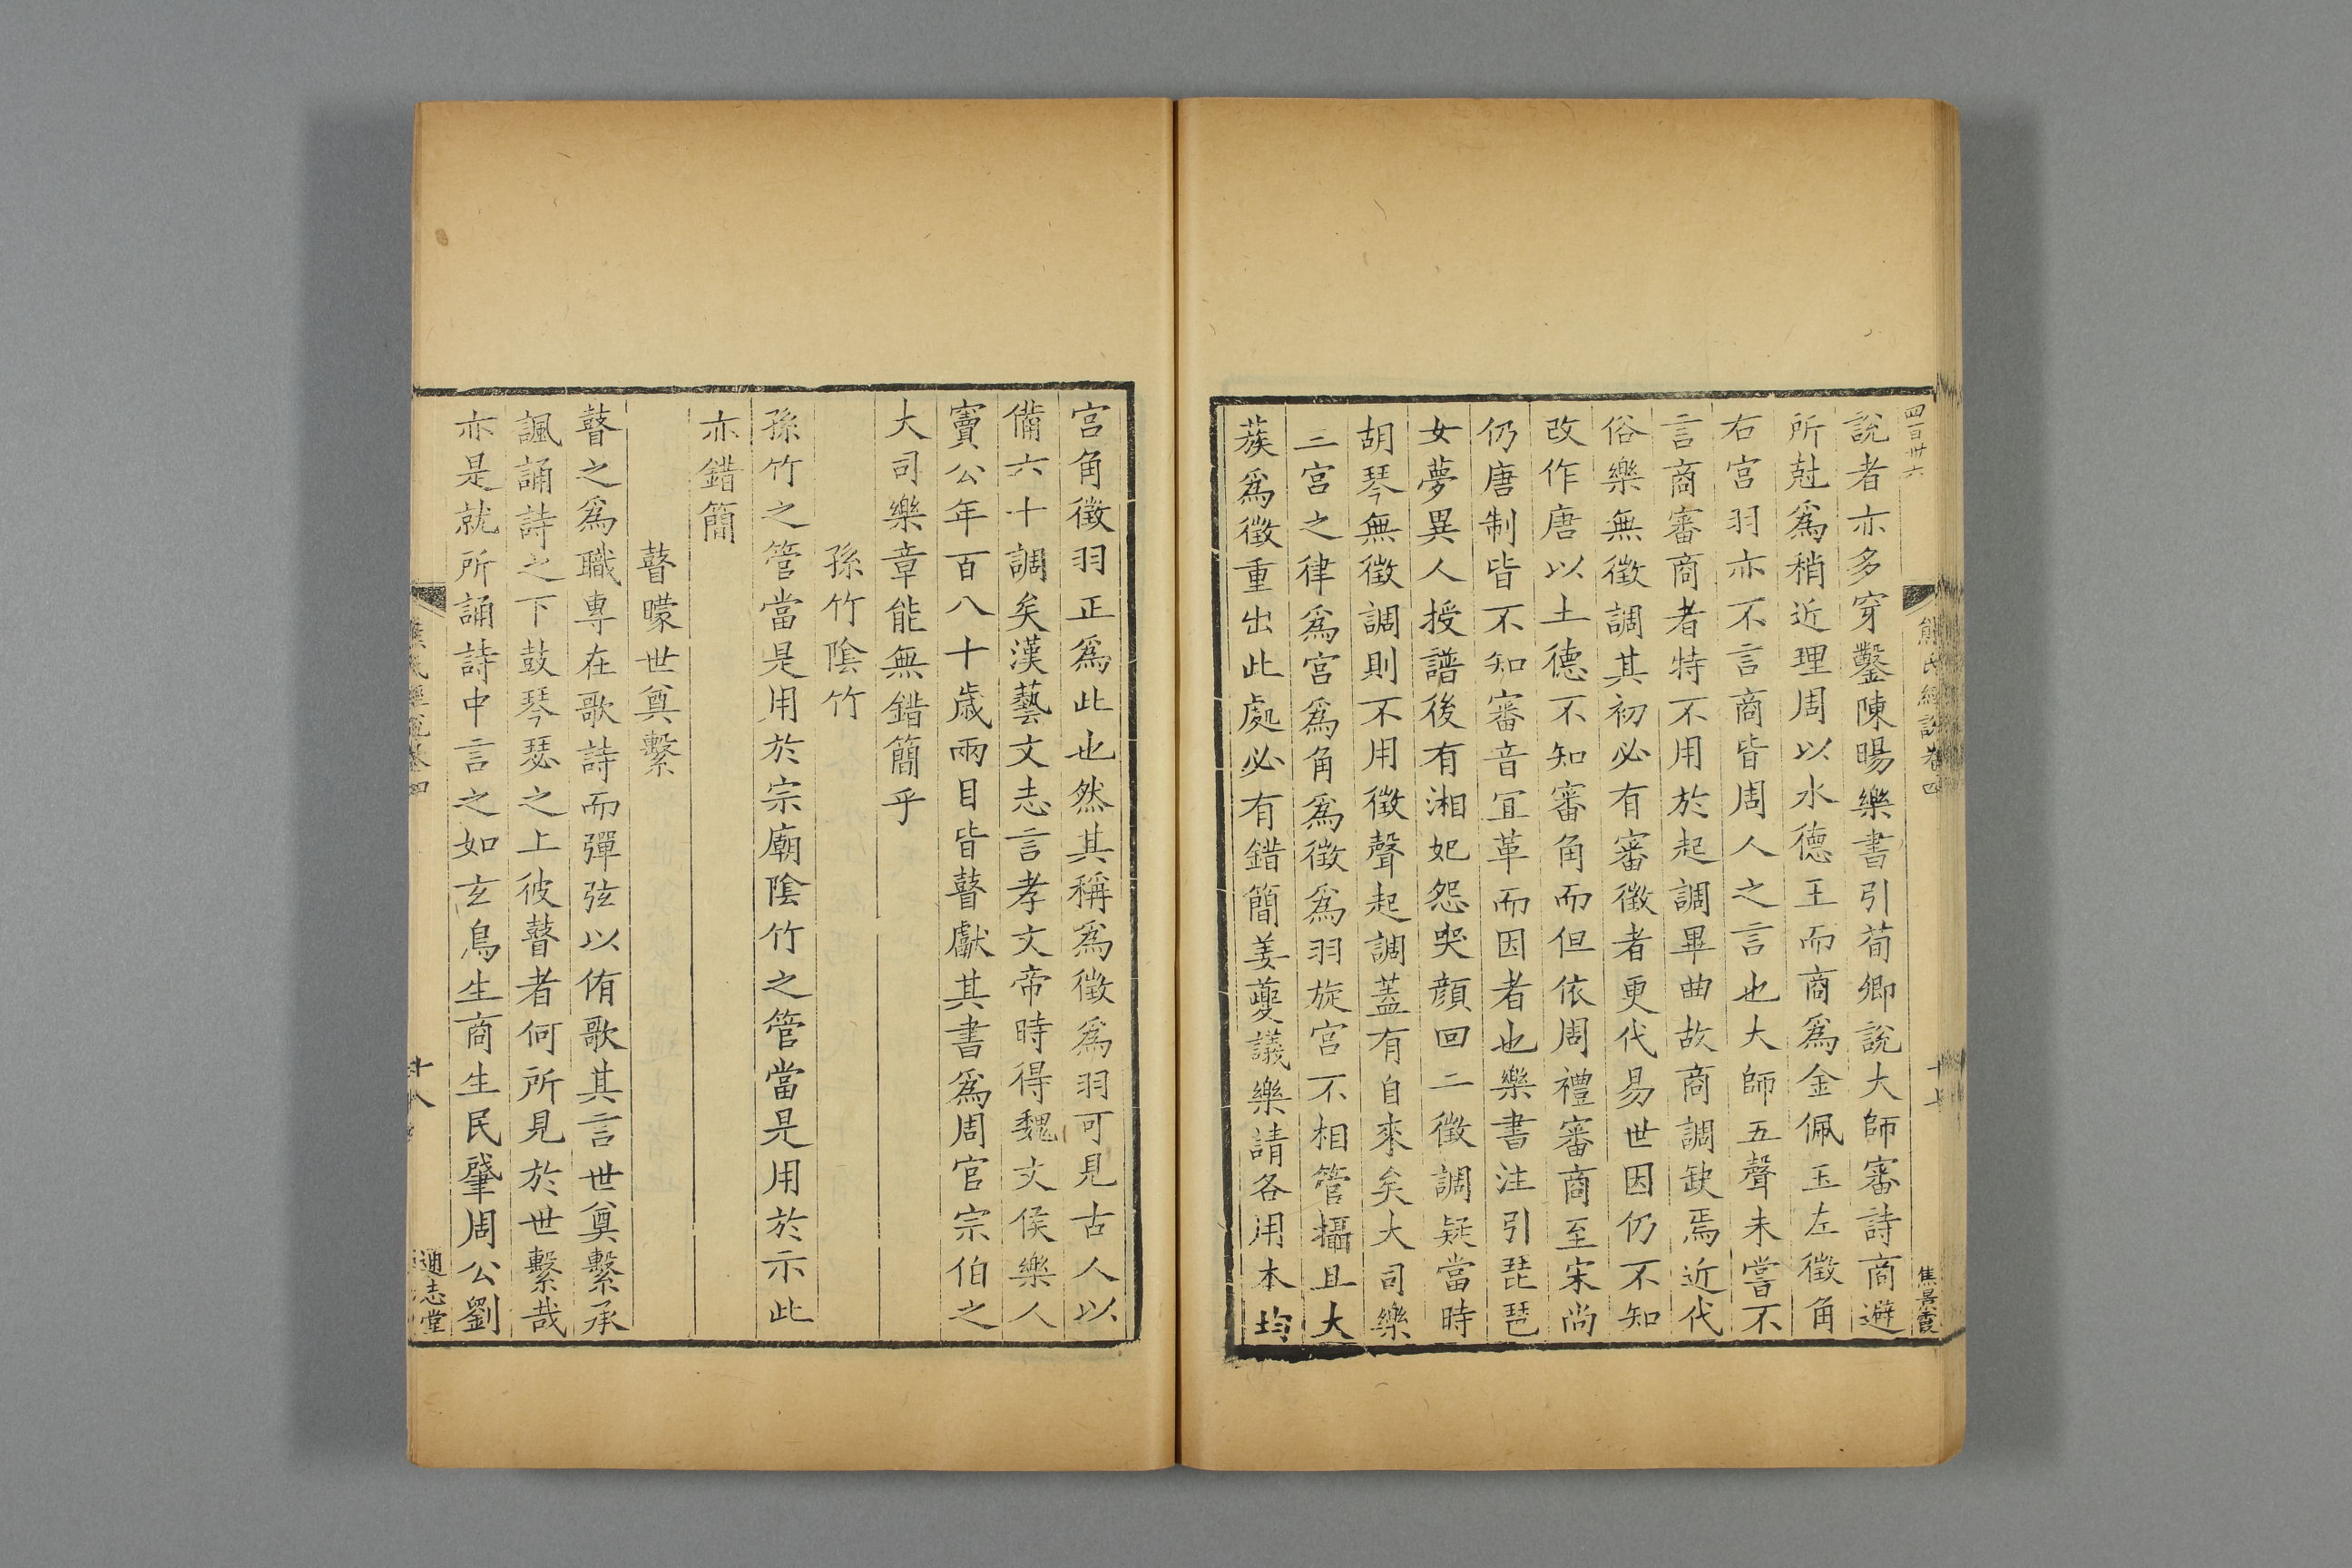 四百卅六
熊氏經說卷四
十七
焦景霞
說者亦多穿鑿陳暘樂書引荀卿說大師審詩商避
所尅爲稍近理周以水德王而商爲金佩玉左徵角
右宮羽亦不言商皆周人之言也大師五聲未嘗不
言商審商者特不用於起調畢曲故商調缺焉近代
俗樂無徵調其初必有審徵者更代易世因仍不知
改作唐以土德不知審角而但依周禮審商至宋尚
仍唐制皆不知審音宜革而因者也樂書注引琵琶
女夢異人授譜後有湘妃怨哭顔回二徵調疑當時
胡琴無徵調則不用徵聲起調蓋有自來矣大司樂
三宮之律爲宮爲角爲徵爲羽旋宮不相管攝且大
蔟爲徵重出此處必有錯簡姜夔議樂請各用本均
宮角徵羽正爲此也然其稱爲徵爲羽可見古人以
備六十調矣漢藝文志言孝文帝時得魏文侯樂人
竇公年百八十歲兩目皆瞽獻其書爲周官宗伯之
大司樂章能無錯簡乎
孫竹陰竹
孫竹之管當是用於宗廟陰竹之管當是用於示此
亦錯簡
瞽矇世奠繫
瞽之爲職專在歌詩而彈弦以侑歌其言世奠繫承
諷誦詩之下鼓琴瑟之上彼瞽者何所見於世繫哉
亦是就所誦詩中言之如玄鳥生商生民肇周公劉
熊氏經說卷四
十八
通志堂